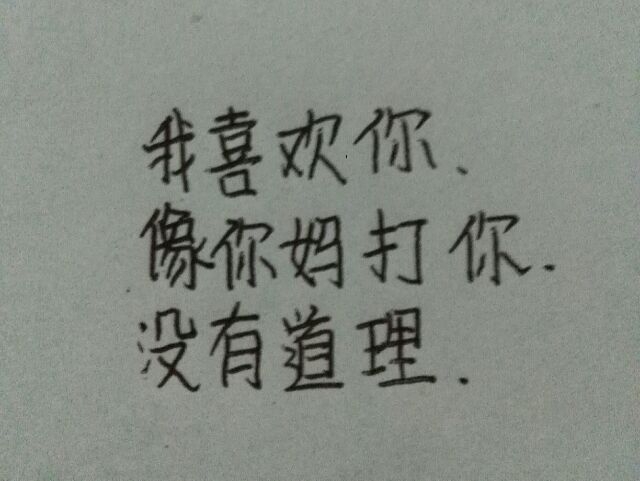 我喜欢你.
像你妈打你.
没有道理.